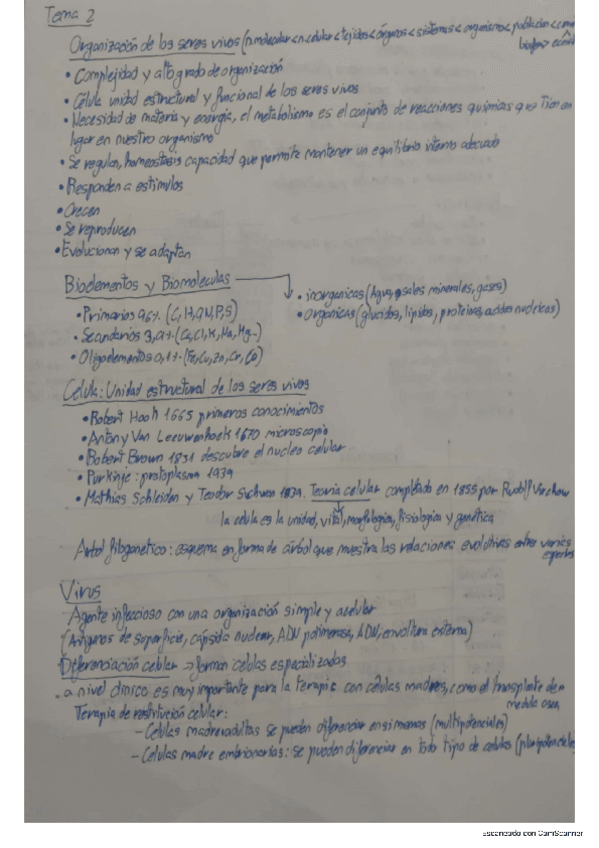 Tema 2
Organización de los seres vivos (n.molecular < n.celular < tejidos < órganos < sistemas < organismo < poblacion <
• Complejidad y alto grado de organización
• Célula unidad estructural y funcional de los seres vivos
• Necesidad de materia y energía, el metabolismo es el conjunto de reacciones químicas que tienen
lugar en nuestro organismo
• Se regulan, homeostasis capacidad que permite mantener un equilibrio interno adecuado
• Responden a estimulos
• Crecen
• Se reproducen
• Evolucionan y se adaptan
Bioelementos y Biomoleculas
• inorganicas (Agua, sales minerales, gases)
• organicas (glucidos, lipidos, proteinas, acidos nucleicos)
• Primarios 96% (C, H, O, N, P, S)
• Secundarios 3,9% (Ca, Cl, K, Na, Mg...)
• Oligoelementos 0,1% (Fe, Cu, Zn, Cr, Co)
Celula: Unidad estructural de los seres vivos
• Robert Hooh 1665 primeros conocimientos
• Antony Van Leeuwenhoek 1670 microscopio
• Robert Brown 1831 descubre el nucleo celular
• Purkinje: protoplasma 1939
• Mathias Schleiden y Teodor Schwan Teoria celular completada en 1855 por Rudolf Virchow
la celula es la unidad, vital, morfologica, fisiologica y genética
Arbol filogenetico: esquema en forma de árbol que muestra las relaciones evolutivas entre varias
especies
Virus
Agente infeccioso con una organización simple y acelular
(Antigenos de superficie, cápsida nuclear, ADN polimerasa, ADN, envoltura externa)
Diferenciación celular → forman celulas especializadas
. a nivel clinico es muy importante para la terapia con células madres, como el transplante de
medula osea
Terapia de restitución celular:
- Celulas madre adultas se pueden diferenciar en si mismas (multipotenciales)
- Celulas madre embrionarias: se pueden diferenciar en todo tipo de celulas (pluripotenciales
Escaneado con CamScanner